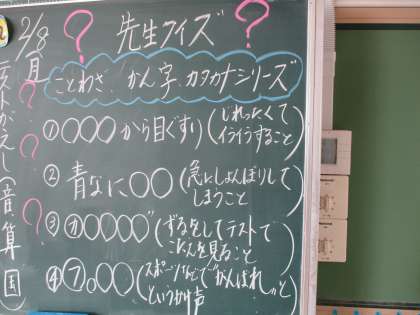 2/8
月
テストがえし(音算国)
先生クイズ
ことわざ、かん字、カタカナシリーズ
①○○○から目ぐすり(じれったくてイライラすること)
②青なに○○(急にしょんぼりしてしまうこと)
③カ○○○○゛(ずるをしてテストでこたえを見ること)
④フ。○○(スポーツなどで"がんばれ"っとというかけ声)